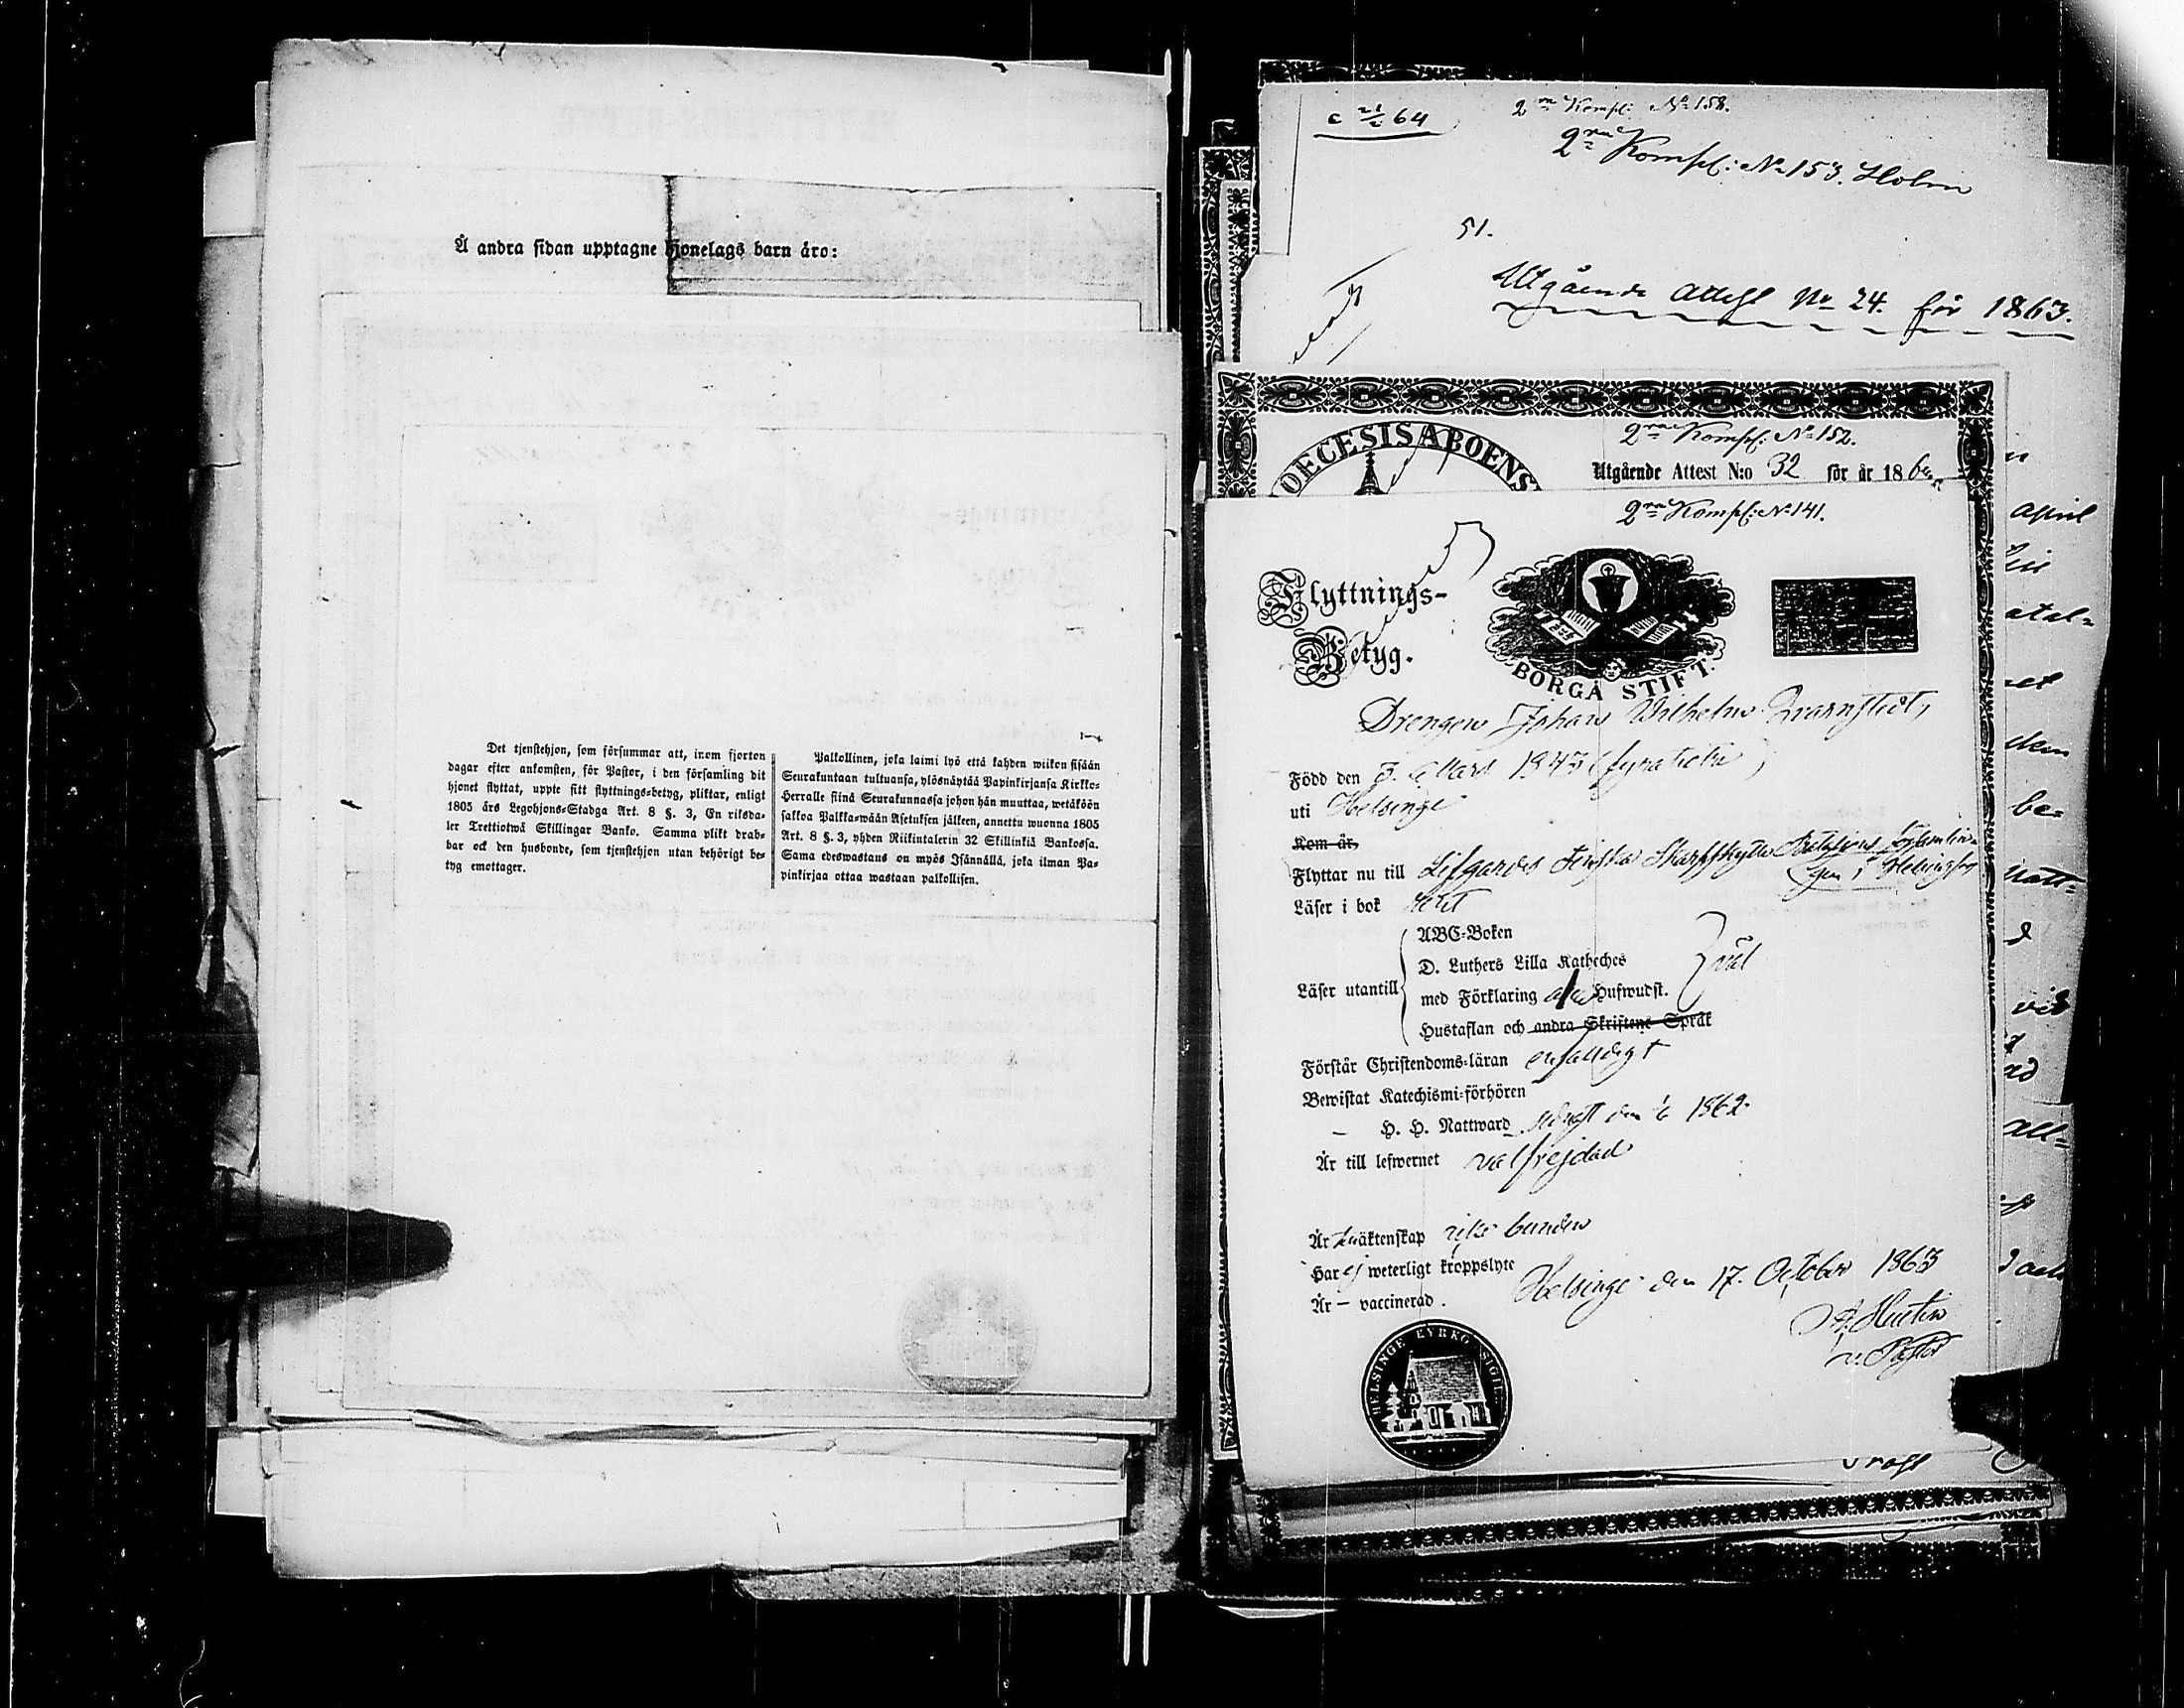 Å andra sidan upptagne hjonelags barn äro:
Det tjenstehjon, som försummar att, inom fjorton
dagar efter ankomsten, för Pastor, i den församling dit
hjonet flyttat, uppte sitt flyttnings-betyg, pliktar, enligt
1805 års Legohjons-Stadga Art. 8 §. 3, En riksda-
ler Trettiotwå Skillingar Banko. Samma plikt drab-
bar ock den husbonde, som tjenstehjon utan behörigt be-
tyg emottager.
Palkollinen, joka laimi lyö että kahden wiikon sisään
Seurakuntaan tultuansa, ylösnäytää Papinkirjansa Kirkko-
Herralle siinä Seurakunnassa johon hän muuttaa, wetäköön
sakkoa Palkka-wään Asetuksen jälkeen, annettu wuonna 1805
Art. 8 §. 3, yhden Riikintalerin 32 Skillinkiä Bankossa.
Sama edeswastaus on myös Isännällä, joka ilman Pa-
pinkirjaa ottaa wastaan palkollisen.
2ra Kompl: No 158.
2ra Kompl: No 153. Holm
51.
Utgående Attest No 24. för 1863.
2ra Kompl: No 152.
DIOECESIS ABOENSIS
Utgående Attest N:o 32 för år 186
2ra Kompl: No 141.
Flyttnings-
Betyg.
BORGÅ STIFT.
Drengen Johan Wilhelm Qvarnstedt,
Född den 3. Mars 1843 (fyratitre)
uti Helsinge
Kom år,
Flyttar nu till Lifgardes Finska Skarpskytte Bataljons Församlin-
gen i Helsingfors
Läser i bok
ABC-Boken
D. Luthers Lilla Katheches
med Förklaring alla Hufwudst.
Hustaflan och andra Skriftens Språk
Läser utantill
väl
Förstår Christendoms-läran enfaldigt
Bewistat Katechismi-förhören
— H. H. Nattward sednast den 1/6 1862
Är till lefwernet välfrejdad
Är till äktenskap icke bunden
Har ej weterligt kroppslyte
Är — vaccinerad.
Helsinge den 17. October 1863
Hertin
v. Pastor
HELSINGE KYRKO SIGILL
April